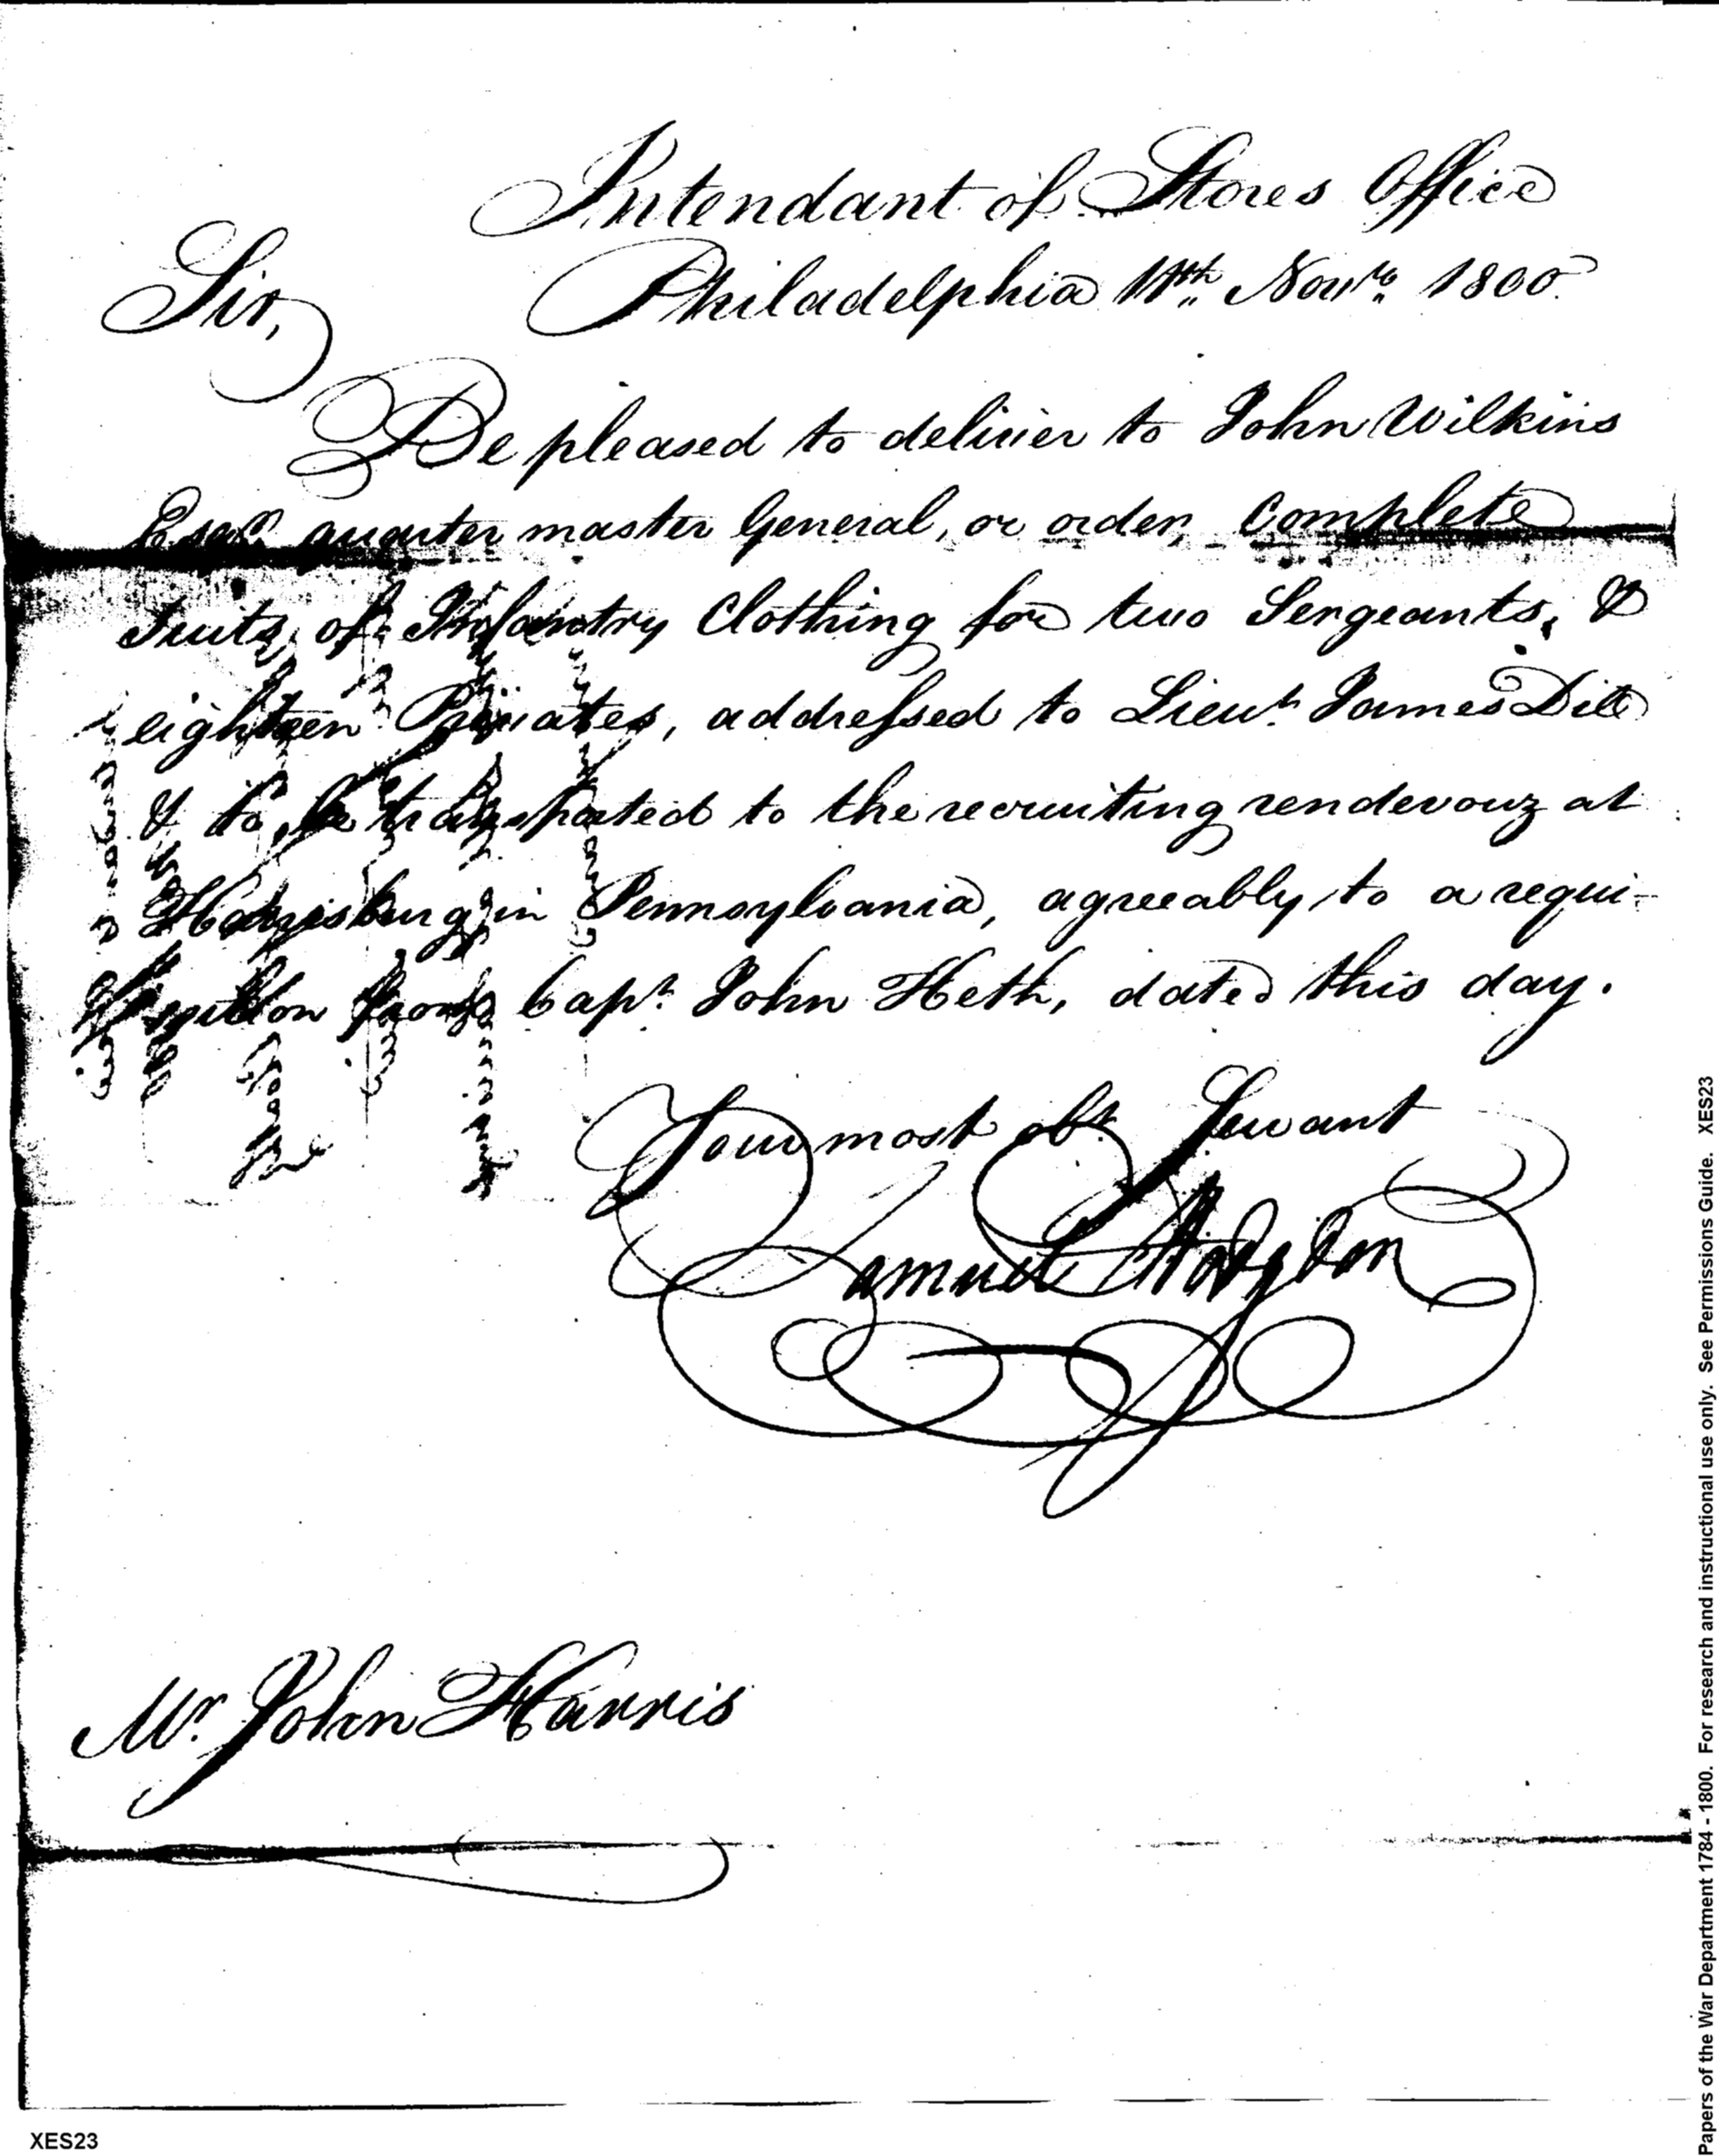 Intendant of Stores Office
Sir, Philadelphia 11th Novr. 1800.
Be pleased to deliver to John Wilkins
Esqr. quarter master General, or order, Complete
Suits of Infantry Clothing for two Sergeants, &
eighteen Privates, addressed to Lieut. James Dill
& to be transported to the recruiting rendevouz at
Harrisburg in Pennsylvania, agreeably to a requi-
sition from Capt. John Heth, dated this day.
Your most obt. Servant
Samuel Hodgdon
Mr. John Harris
Papers of the War Department 1784 - 1800. For research and instructional use only. See Permissions Guide. XES23
XES23